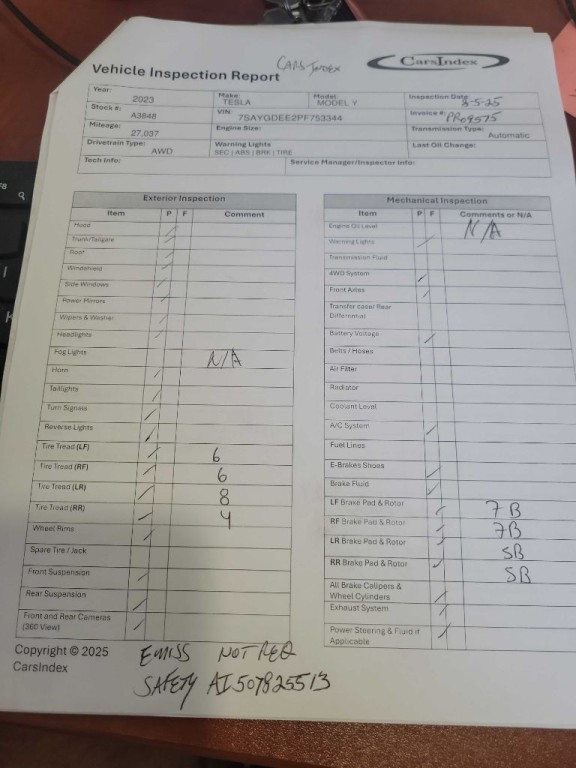 CARS INDEX
CarsIndex
Vehicle Inspection Report
Year: 2023 Make: TESLA Model: MODEL Y Inspection Date: 8-5-25
Stock #: A3848 VIN: 7SAYGDEE2PF753344 Invoice #: PRO9575
Mileage: 27,037 Engine Size: Transmission Type: Automatic
Drivetrain Type: AWD Warning Lights SEC | ABS | BRK | TIRE Last Oil Change:
Tech Info: Service Manager/Inspector Info:
Exterior Inspection
Item P F Comment
Hood
Trunk/Tailgate
Roof
Windshield
Side Windows
Power Mirrors
Wipers & Washer
Headlights
Fog Lights N/A
Horn
Taillights
Turn Signals
Reverse Lights
Tire Tread (LF) 6
Tire Tread (RF) 6
Tire Tread (LR) 8
Tire Tread (RR) 4
Wheel Rims
Spare Tire / Jack
Front Suspension
Rear Suspension
Front and Rear Cameras
(360 View)
Mechanical Inspection
Item P F Comments or N/A
Engine Oil Level N/A
Warning Lights
Transmission Fluid
4WD System
Front Axles
Transfer case/ Rear
Differential
Battery Voltage
Belts / Hoses
Air Filter
Radiator
Coolant Level
A/C System
Fuel Lines
E-Brakes Shoes
Brake Fluid
LF Brake Pad & Rotor 7B
RF Brake Pad & Rotor 7B
LR Brake Pad & Rotor 5B
RR Brake Pad & Rotor 5B
All Brake Calipers &
Wheel Cylinders
Exhaust System
Power Steering & Fluid if
Applicable
Copyright © 2025
CarsIndex
EMISS NOT REQ
SAFETY AI507825513